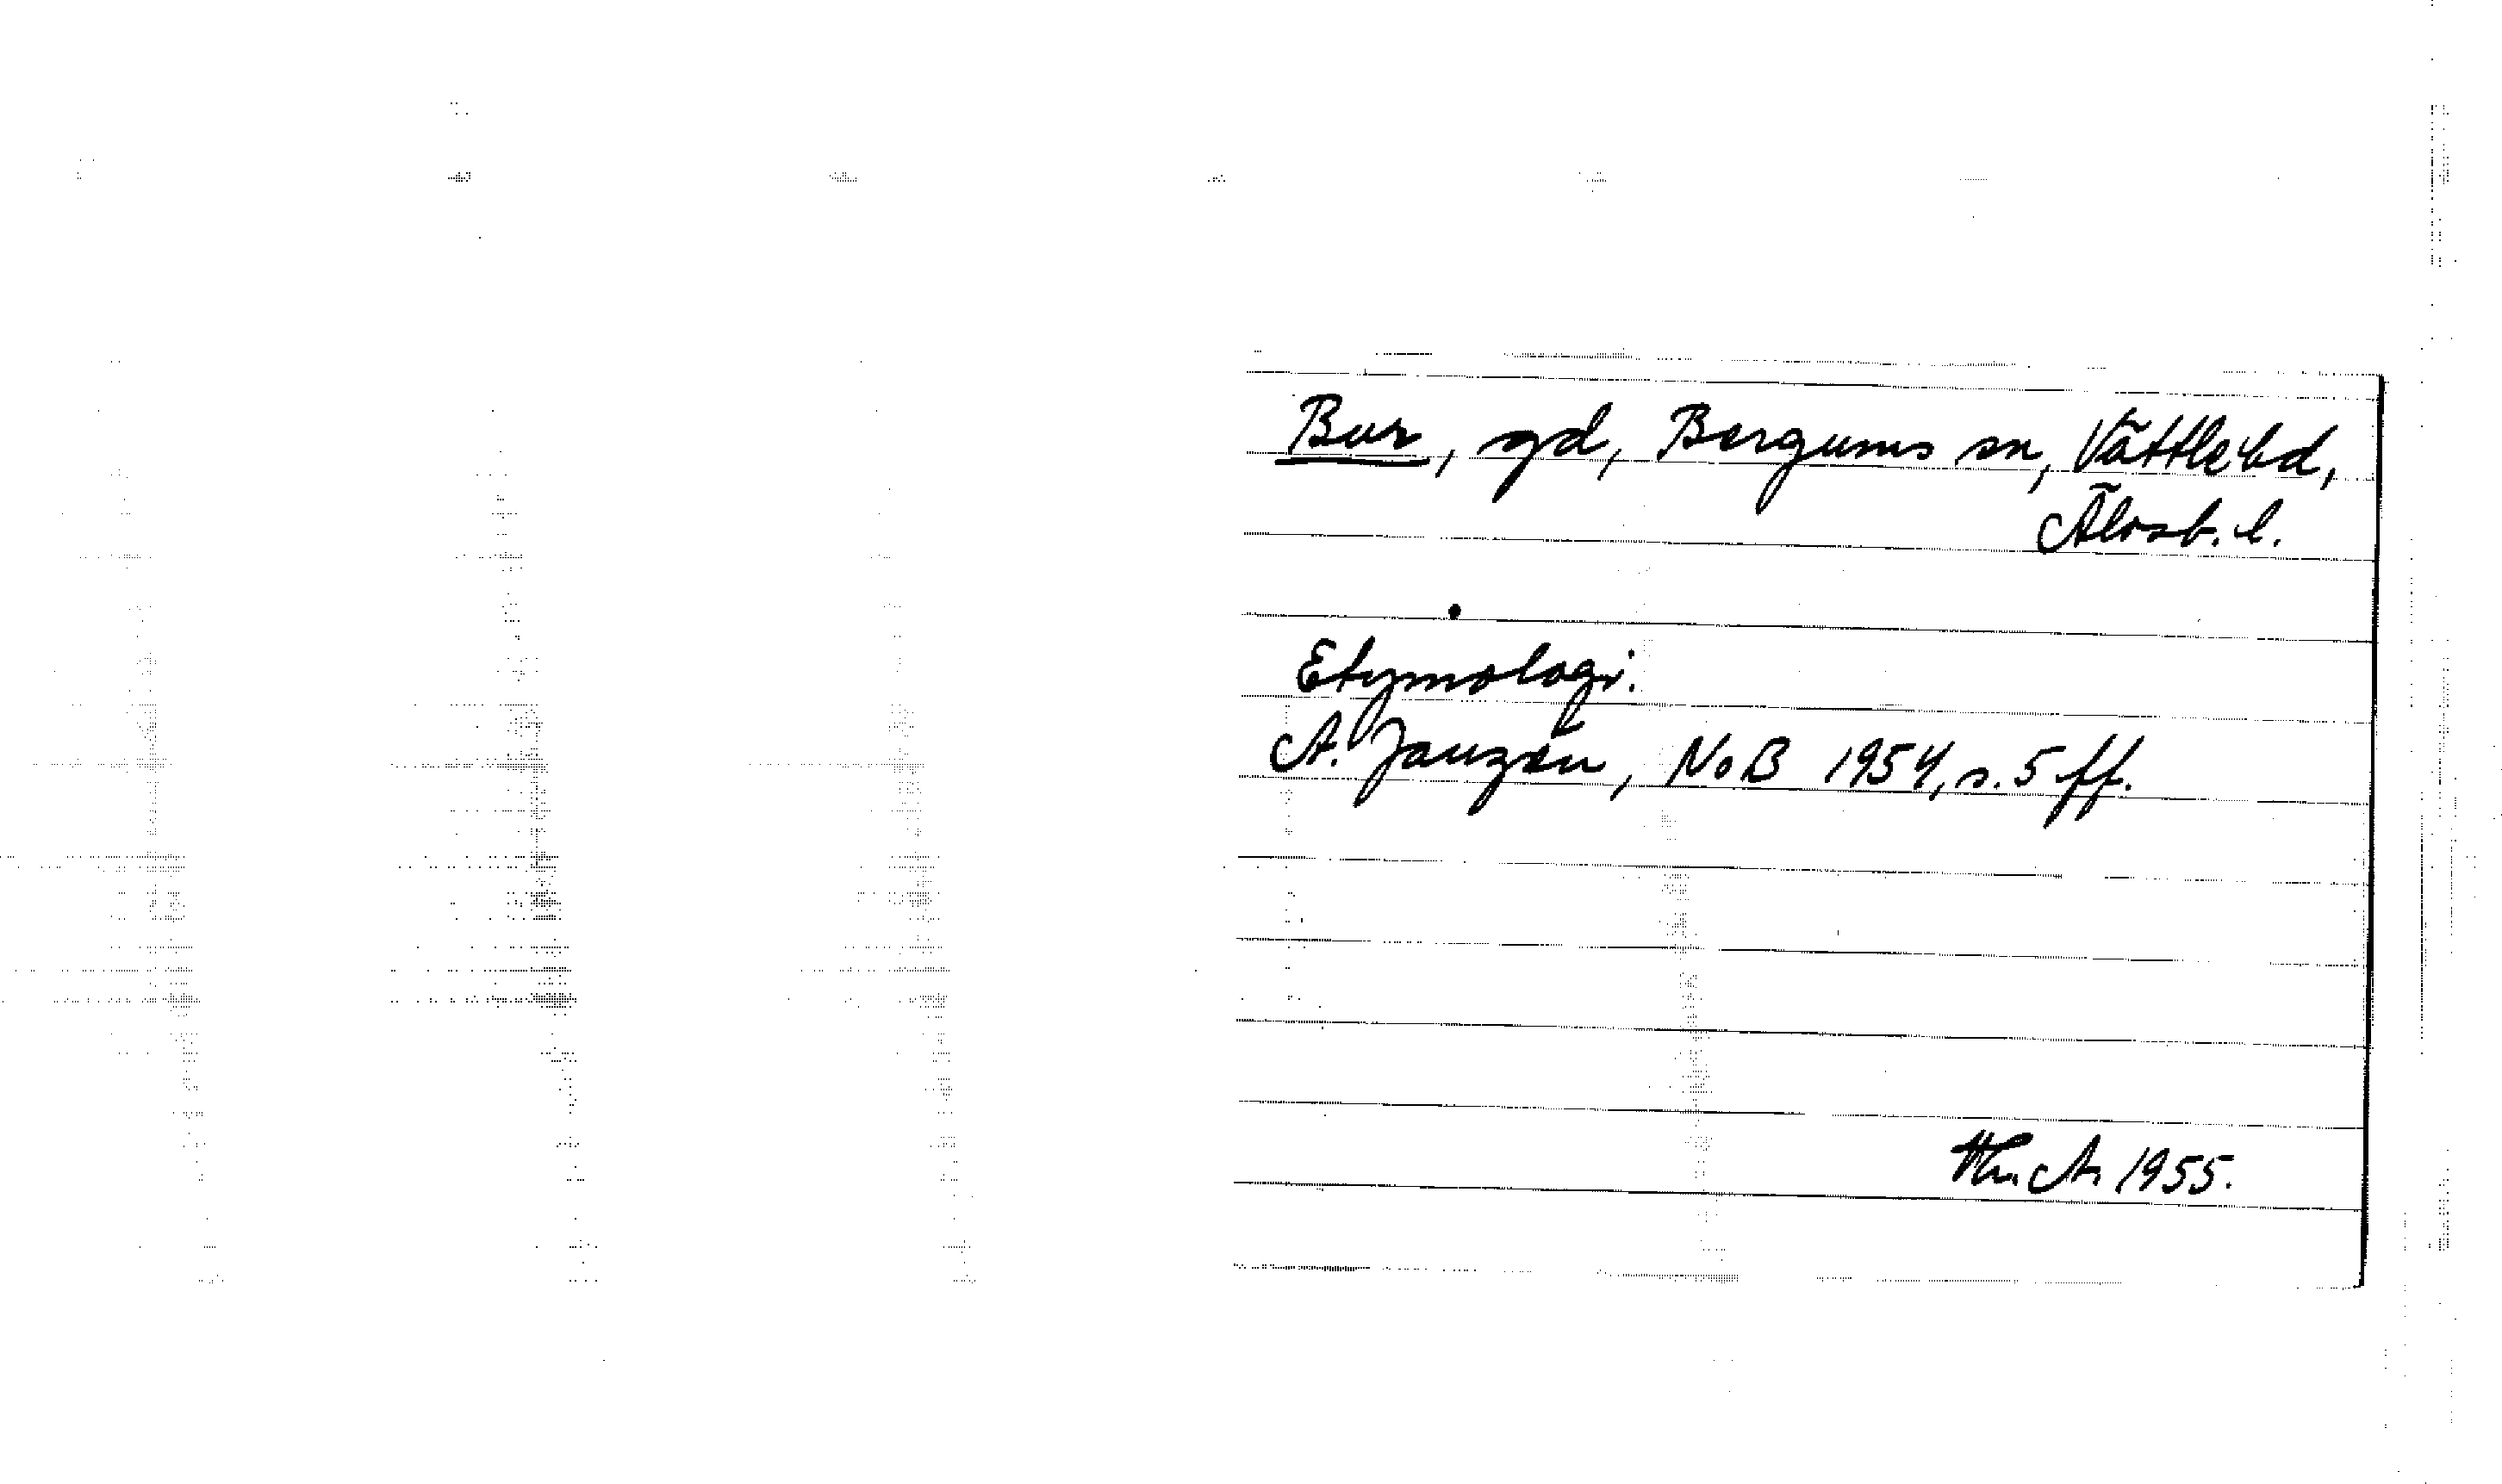 Bur, gd, Bergums sn, Vättle hd,
Älvsb. l.
Etymologi.
A. Janzén, NoB 1954, s. 5 ff.
1955.